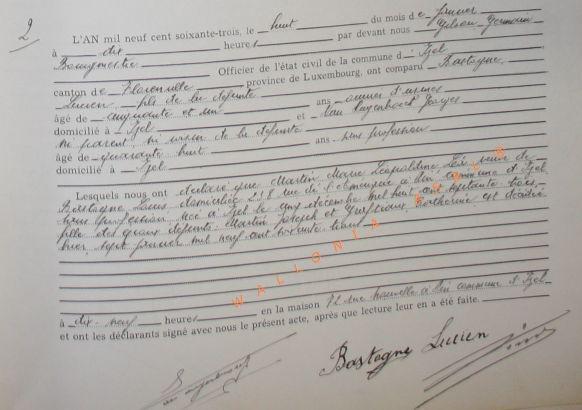 2
L'AN mil neuf cent soixante-trois, le huit du mois de janvier
à dix heures par devant nous Gilson Germain
Bourgmestre Officier de l'état civil de la commune d' Izel
canton de Florenville province de Luxembourg, ont comparu Bastogne
Lucien, fils de la défunte
âgé de cinquante et un ans ouvrier d'usines
domicilié à Izel et Van Georges
ni parent, ni voisin de la défunte
âgé de quarante huit ans sans profession
domicilié à Izel
Lesquels nous ont déclaré que Martin Marie Léopoldine veuve de
Bastogne Louis domiciliée rue de à commune d'Izel
sans profession née à Izel le décembre mil huit cent septante trois,
fille des époux défunts: Martin Joseph et Catherine est décédée
hier, sept janvier mil neuf cent soixante trois
à dix-neuf heures en la maison rue Nouvelle à commune d'Izel
et ont les déclarants signé avec nous le présent acte, après que lecture leur en a été faite.
Bastogne Lucien
WALLONIA